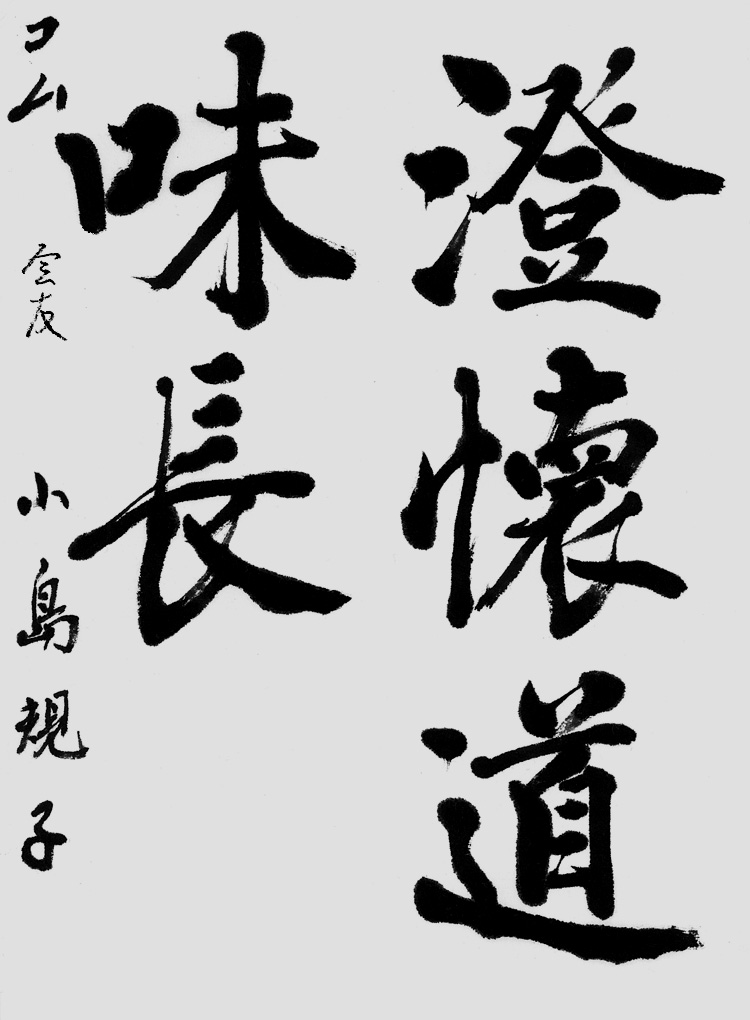 澄懐道
味長
コム 会友 小島規子